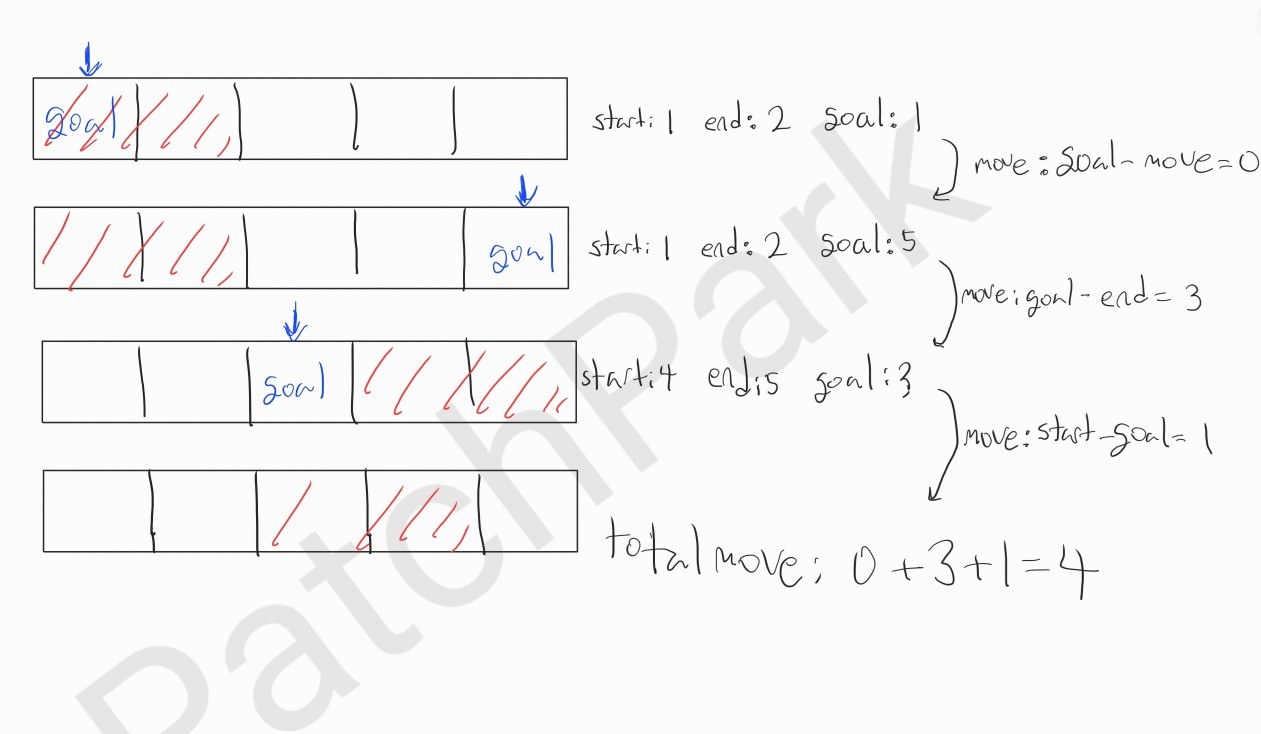 goal
start: 1 end: 2 goal: 1
move: goal - move = 0
goal
start: 1 end: 2 goal: 5
move: goal - end = 3
goal
start: 4 end: 5 goal: 3
move: start - goal = 1
total move: 0 + 3 + 1 = 4
PatchPark